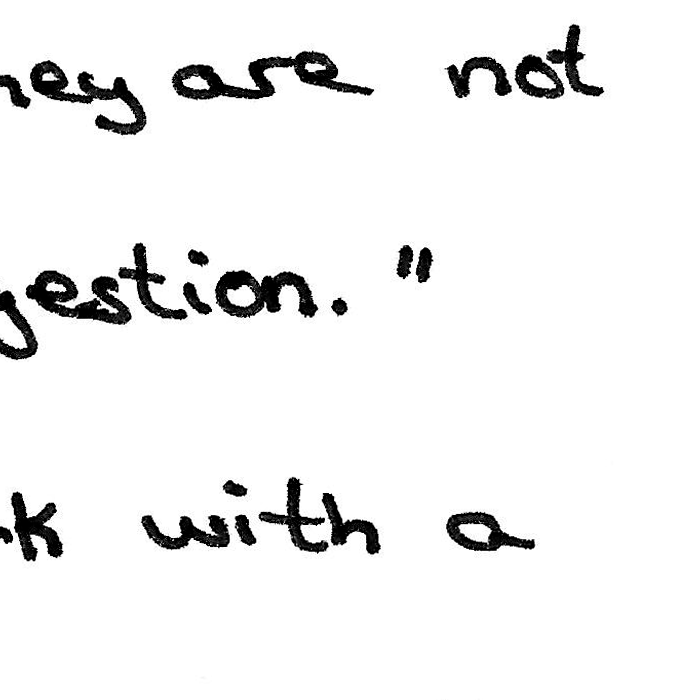 hey are not
gestion."
k with a